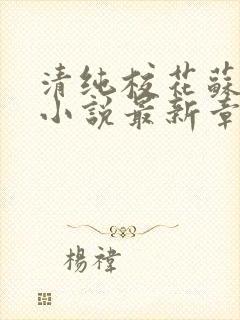 清纯校花蘇
小説最新章
楊禕